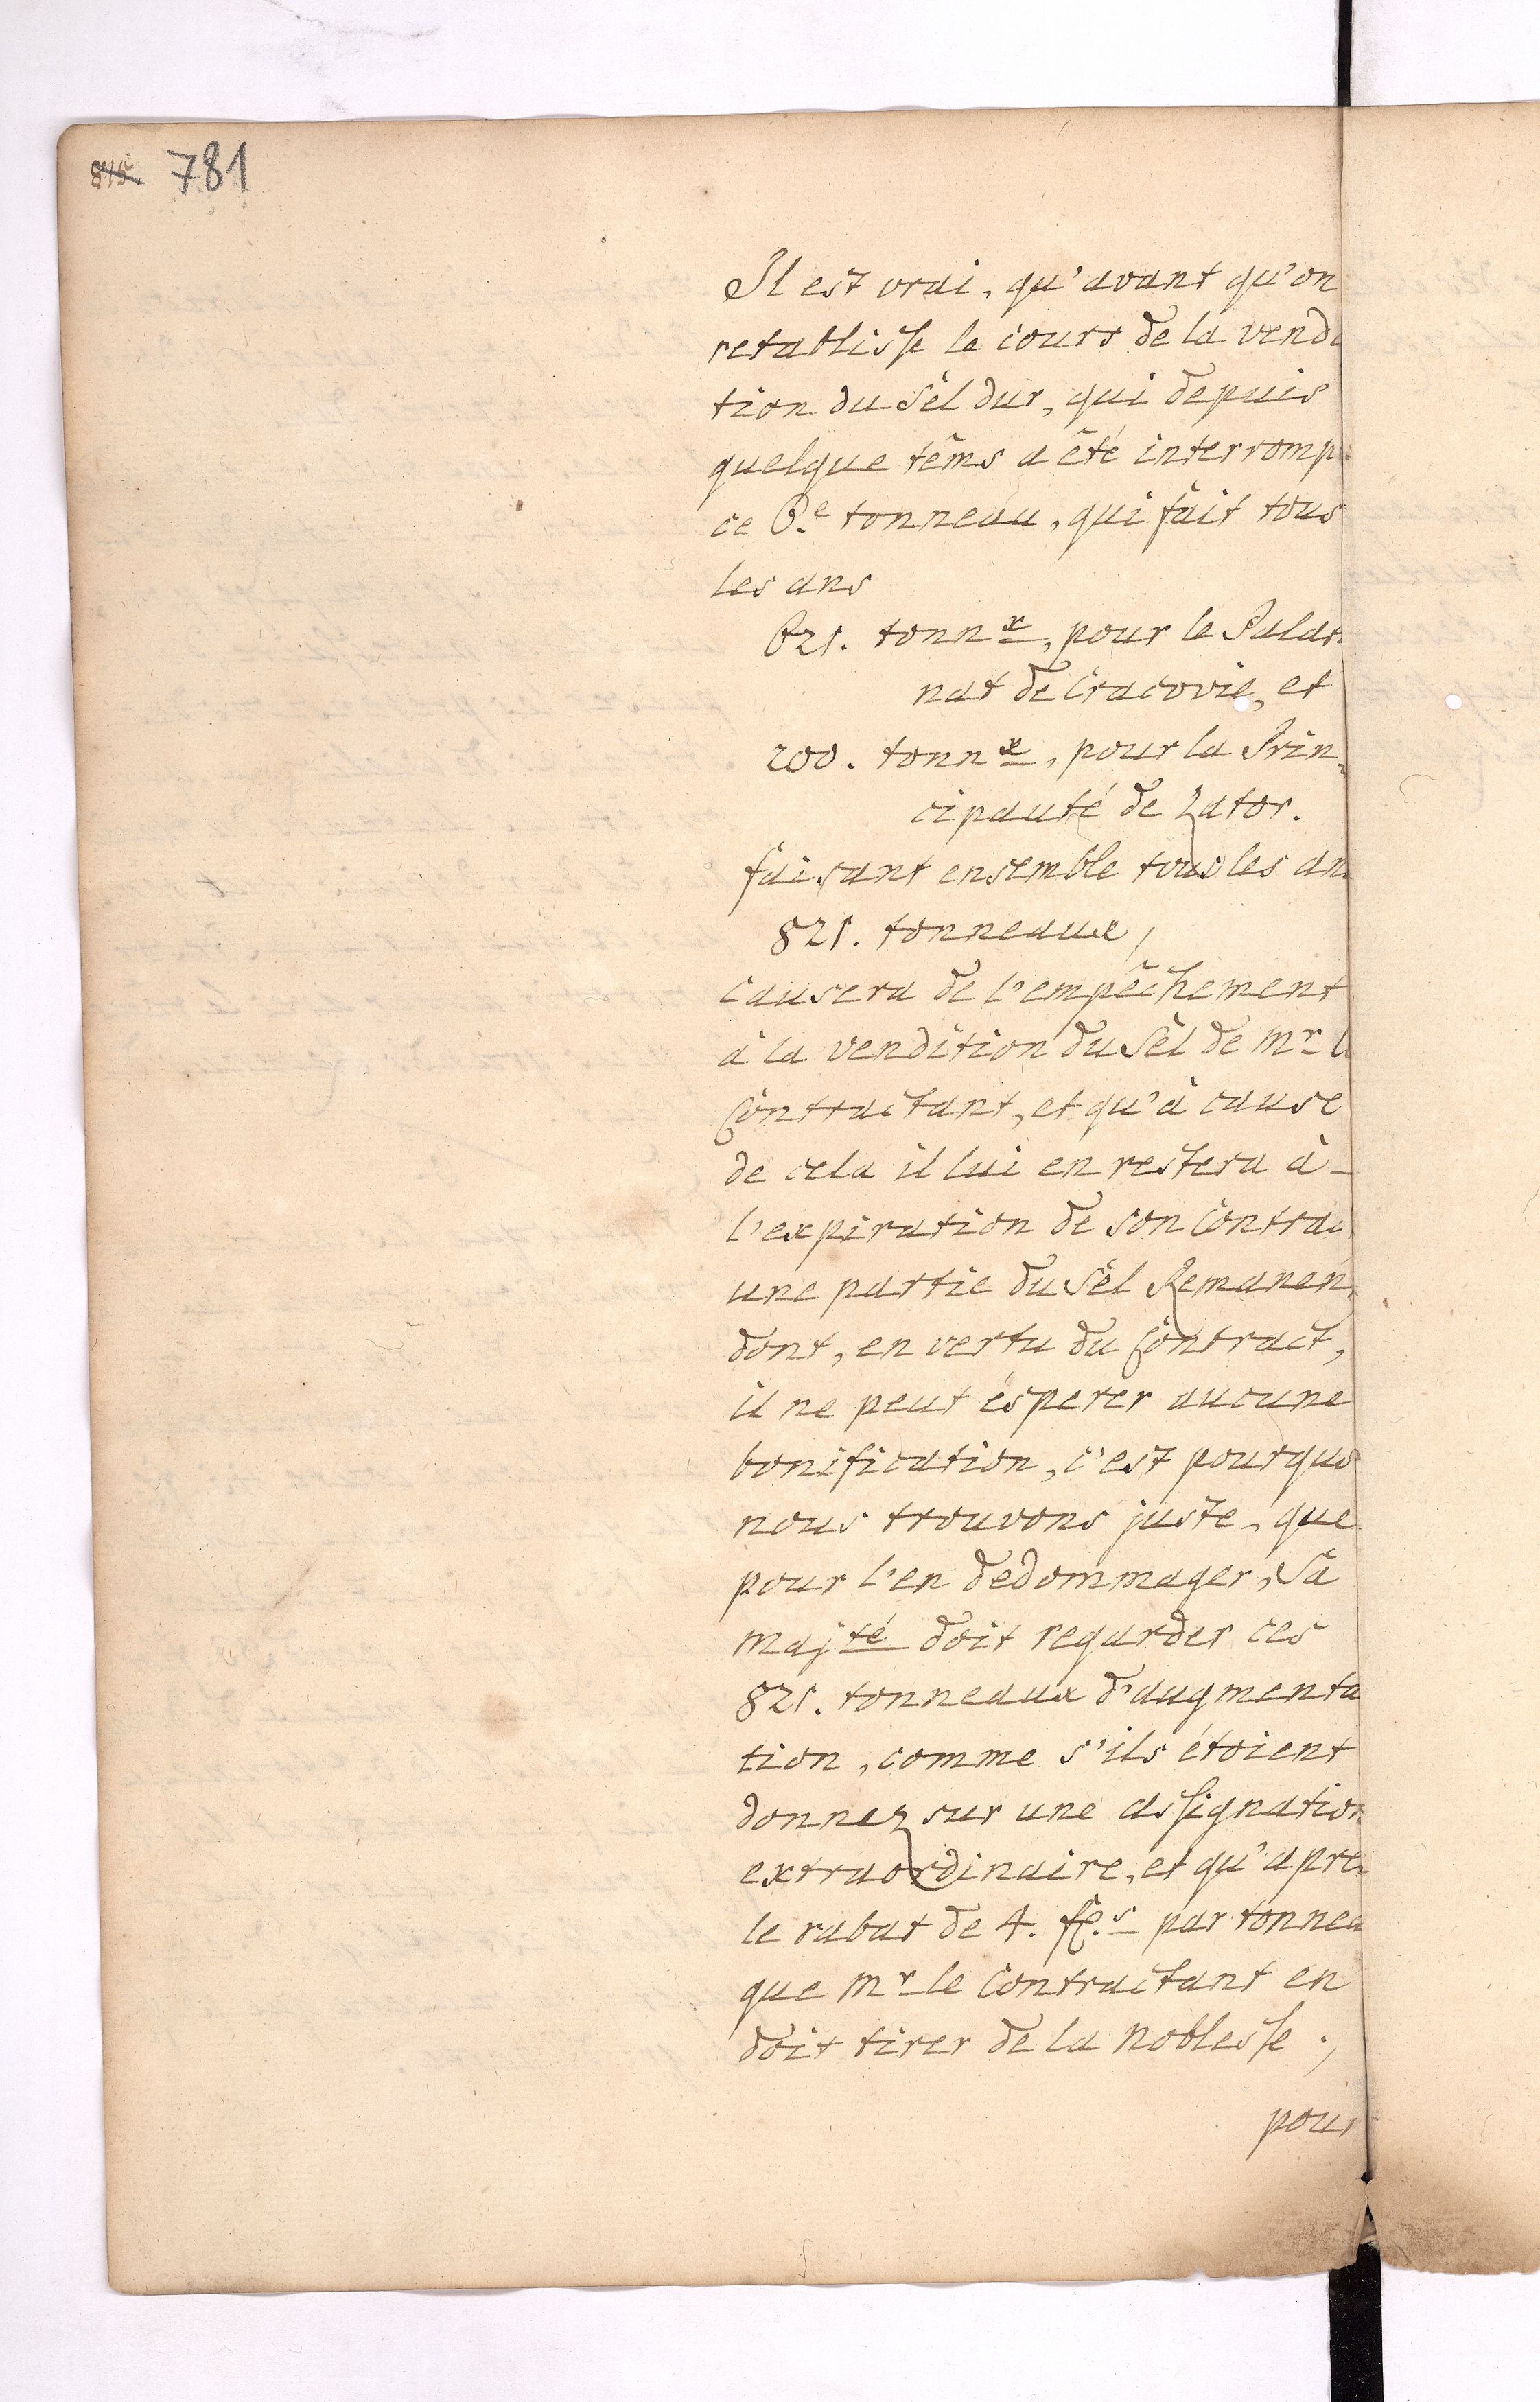 845 781
Il est vrai, qu'avant qu'on
retablisse le cours de la vendi
tion du Sèl dur, qui depuis
quelque têms a êté interromp
ce 6.e tonneau, qui fait tous
les ans
621. tonnx, pour le Palat
nat de Cracovie, et
200. tonnx, pour la Prin
cipauté de Zator.
faisant ensemble tous les an
821. tonneaux,
causera de l'empêchement
à la vendition du Sèl de Mr l
Contractant, et qu'à cause
de cela il lui en restera à
l'expiration de son Contrac
une partie du Sèl Remanen
dont, en vertu du Contract,
il ne peut ésperer aucune
bonification, c'est pourquo
nous trouvons juste, que
pour l'en dedommager, Sa
Majté doit regarder ces
821. tonneaux d'augmenta
tion, comme s'ils étoient
donnez sur une assignation
extraordinaire, et qu'apre
le rabat de 4. par tonnea
que Mr le Contractant en
doit tirer de la Noblesse;
pour